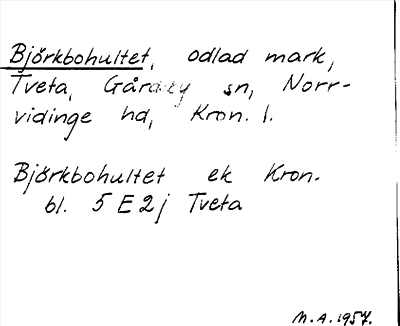 Björkbohultet, odlad mark,
Tveta, Gårdsby sn, Norr-
vidinge hd, Kron. l.
Björkbohultet ek Kron.
bl. 5 E 2 j Tveta
M.A. 1957.